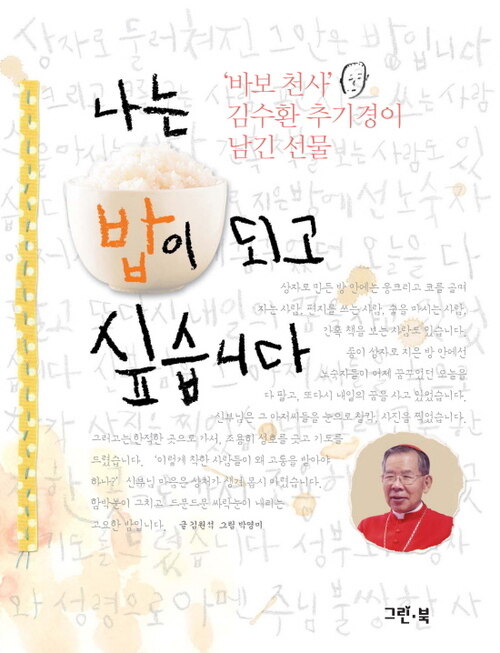 상자로 둘러쳐진 그 안은 밥입니다
'바보 천사'
김수환 추기경이
남긴 선물
나는
밥이 되고
싶습니다
상자로 만든 방 안에는 웅크리고 코를 골며
자는 사람, 편지를 쓰는 사람, 술을 마시는 사람,
간혹 책을 보는 사람도 있습니다.
종이 상자로 지은 방 안에선
노숙자들이 어제 꿈꾸었던 오늘을
다 팔고, 또다시 내일의 꿈을 사고 있었습니다.
신부님은 그 아저씨들을 눈으로 찰칵, 사진을 찍었습니다.
그러고는 한적한 곳으로 가서, 조용히 성호를 긋고 기도를
드렸습니다. '이렇게 착한 사람들이 왜 고통을 받아야
하나?' 신부님 마음은 상처가 생겨 몹시 아렸습니다.
함박눈이 그치고, 드문드문 싸락눈이 내리는
고요한 밤입니다. 글 김원석 그림 박영미
와 성령으로 아멘 주님 불쌍한 사
그린·북